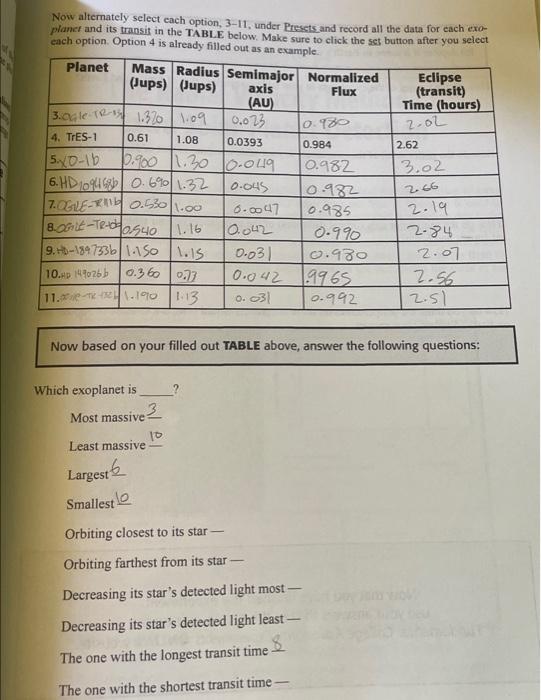 Now alternately select each option, 3-11, under Presets and record all the data for each exo-
planet and its transit in the TABLE below. Make sure to click the set button after you select
each option. Option 4 is already filled out as an example.
Planet Mass (Jups) Radius (Jups) Semimajor axis (AU) Normalized Flux Eclipse (transit) Time (hours)
3. 1.320 1.09 0.023 0.980 2.02
4. TrES-1 0.61 1.08 0.0393 0.984 2.62
5. XO-1b 0.900 1.30 0.049 0.982 3.02
6. 0.690 1.32 0.045 0.982 2.66
7. 0.530 1.00 0.0047 0.985 2.19
8. 0.540 1.16 0.042 0.990 2.84
9. HD-189733b 1.150 1.15 0.031 0.980 2.07
10. HD 149026b 0.360 0.73 0.042 .9965 2.56
11. 1.190 1.13 0.031 0.992 2.51
Now based on your filled out TABLE above, answer the following questions:
Which exoplanet is ____?
Most massive 3
Least massive 10
Largest 6
Smallest 10
Orbiting closest to its star —
Orbiting farthest from its star —
Decreasing its star's detected light most —
Decreasing its star's detected light least —
The one with the longest transit time 8
The one with the shortest transit time —